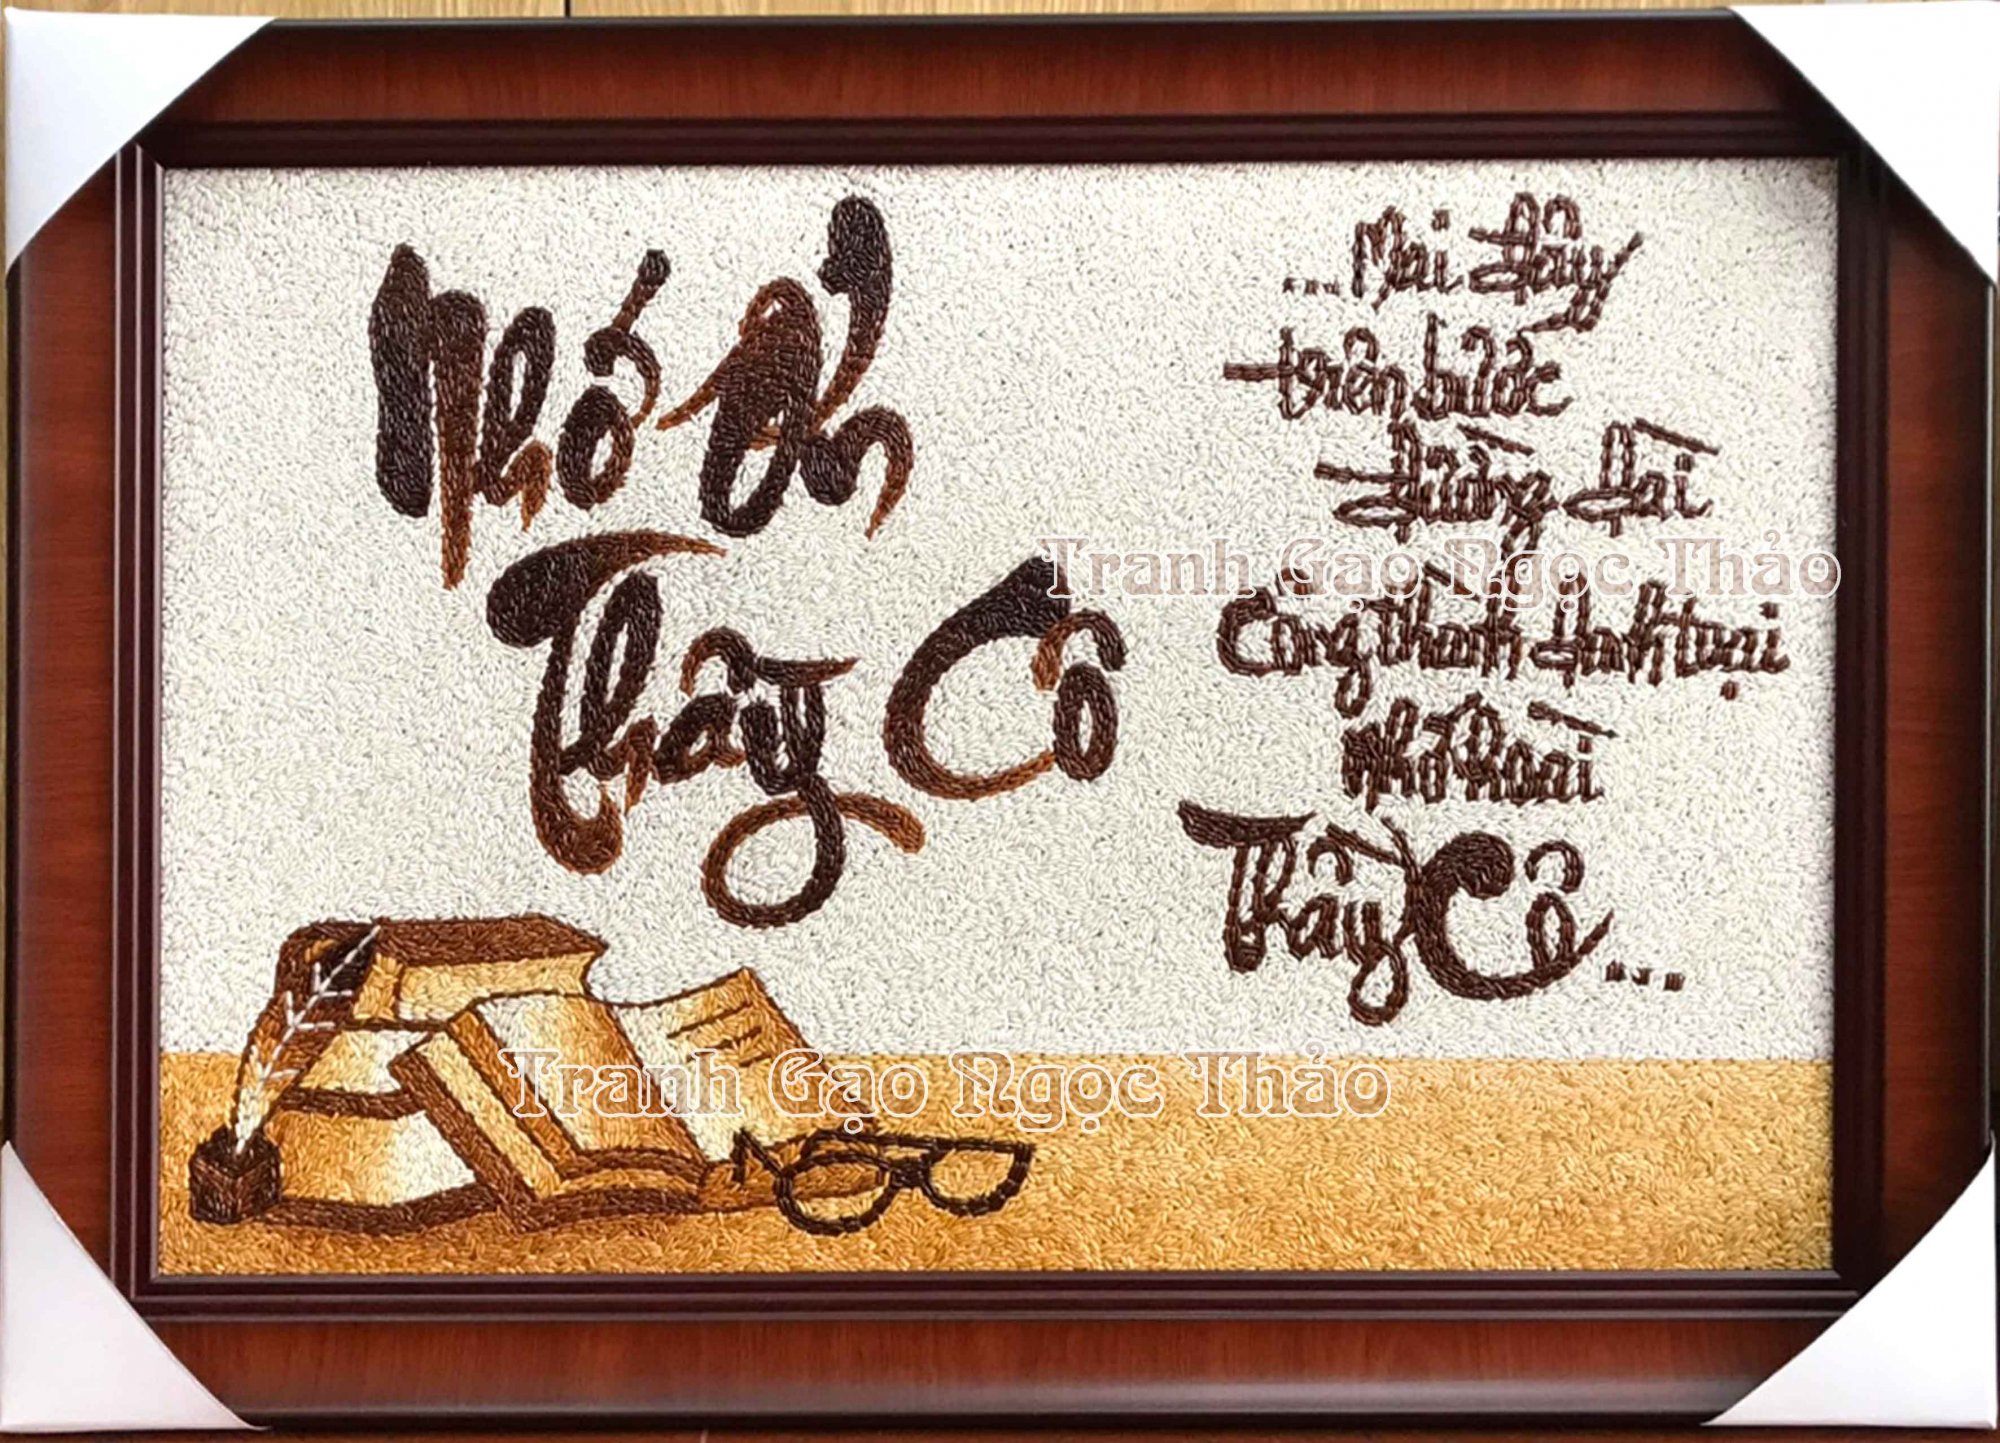 Nhớ Ơn
Thầy Cô
...Mai đây
trên bước
đường đời
Công thành danh toại
nhớ hoài
Thầy Cô...
Tranh Gạo Ngọc Thảo
Tranh Gạo Ngọc Thảo